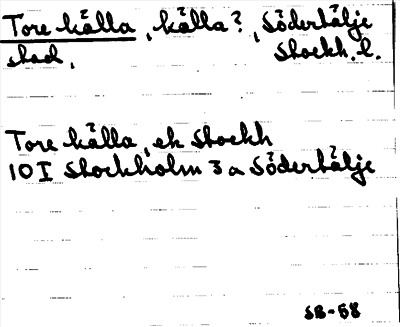 Tore källa, källa?, Södertälje
stad, Stockh. l.
Tore källa, ek Stockh
10 I Stockholm 3 a Södertälje
SB-68